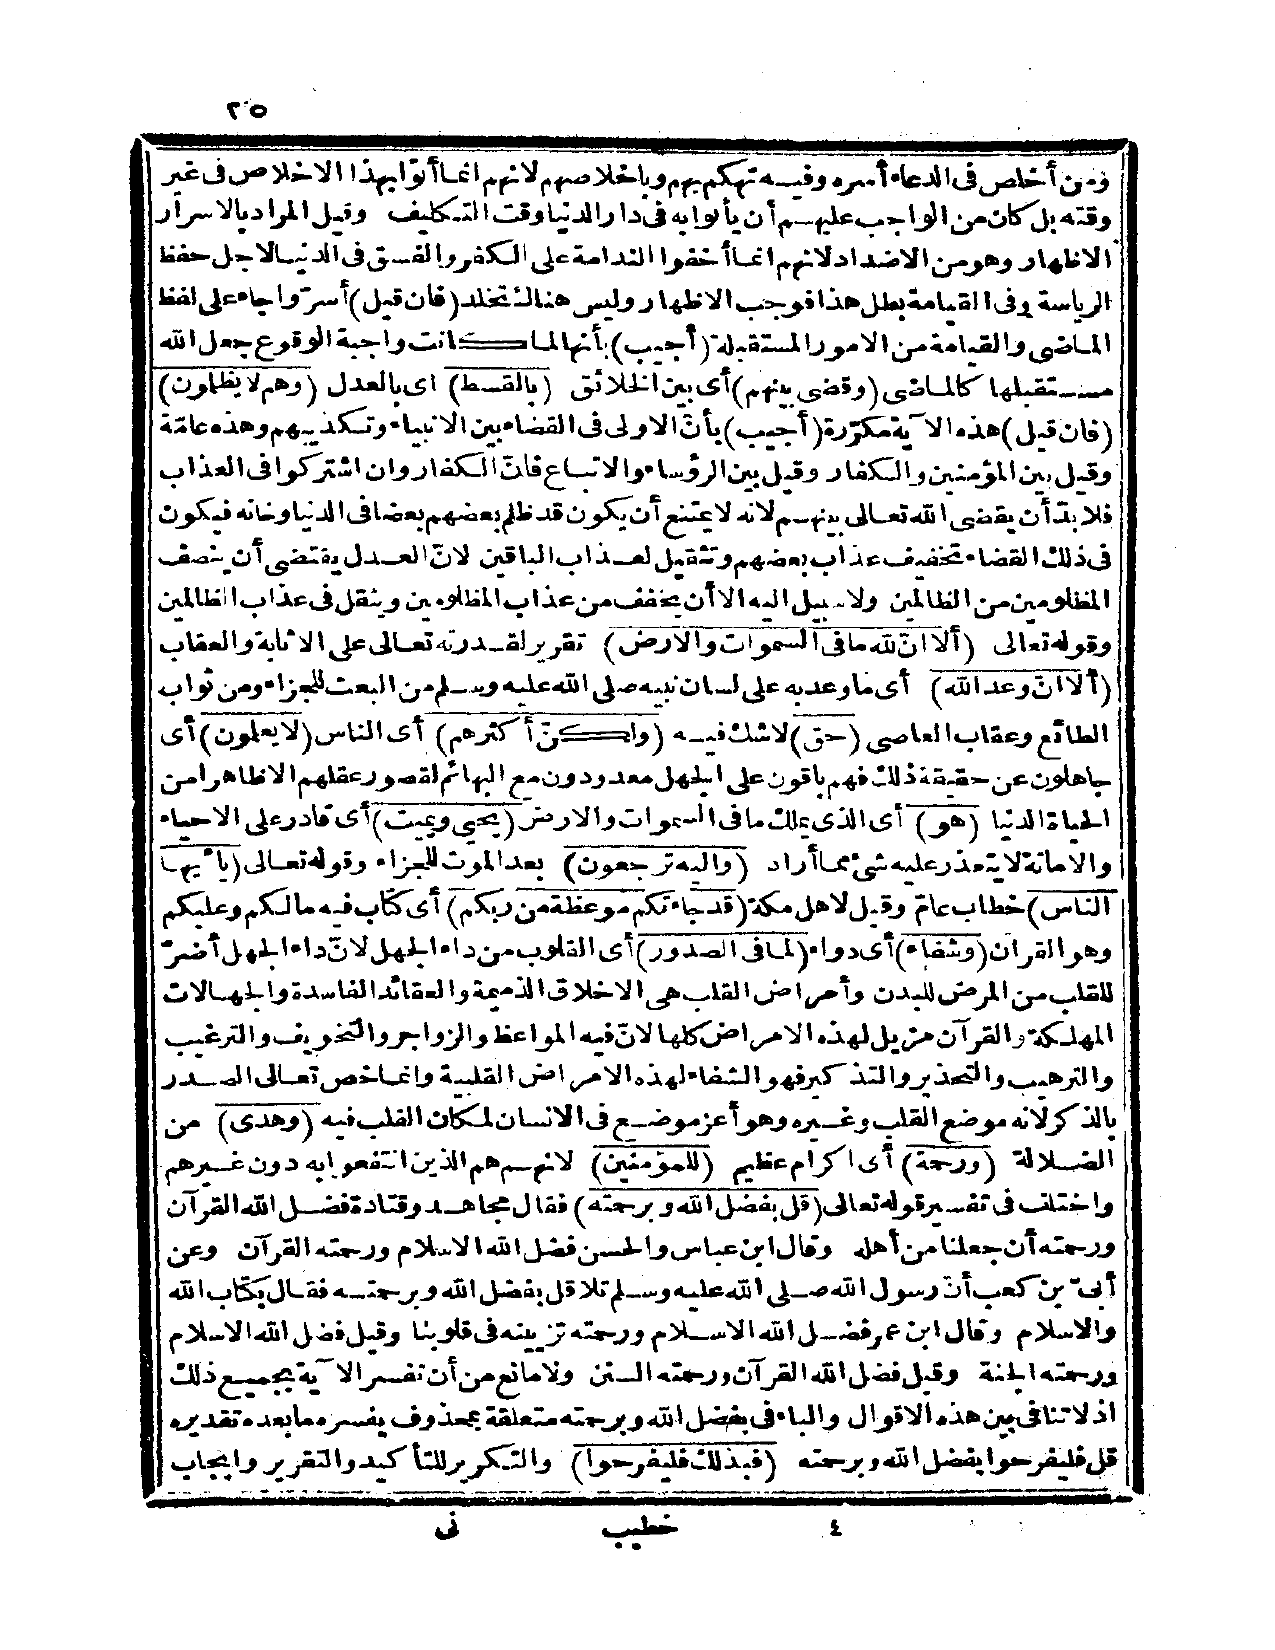 ٢٥
ومن أخلص فى الدعاء أسره وفيه تهكم بهم وباخلاصهم لانهم انما أتوا بهذا الاخلاص فى غير
وقته بل كان من الواجب عليهم أن يأتوا به فى دار الدنيا وقت التكليف وقيل المراد بالاسرار
الاظهار وهو من الاضداد لانهم انما أخفوا الندامة على الكفر والفسق فى الدنيا لاجل حفظ
الرياسة وفى القيامة بطل هذا فوجب الاظهار وليس هناك تجلد (فان قيل) أسرّوا جاء على لفظ
الماضى والقيامة من الامور المستقبلة (أجيب) بأنها لما كانت واجبة الوقوع جعل الله
مستقبلها كالماضى (وقضى بينهم) أى بين الخلائق (بالقسط) اى بالعدل (وهم لا يظلمون)
(فان قيل) هذه الآية مكرّرة (أجيب) بأنّ الاولى فى القضاء بين الانبياء وتكذيبهم وهذه عامّة
وقيل بين المؤمنين والكفار وقيل بين الرؤساء والاتباع فانّ الكفار وان اشتركوا فى العذاب
فلا بدّ أن يقضى الله تعالى بينهم لانه لا يمتنع أن يكون قد ظلم بعضهم بعضا فى الدنيا وخانه فيكون
فى ذلك القضاء تخفيف عذاب بعضهم وتثقيل لعذاب الباقين لانّ العدل يقتضى أن ينصف
المظلومين من الظالمين ولا سبيل اليه الا أن يخفف من عذاب المظلومين ويثقل فى عذاب الظالمين
وقوله تعالى (ألا انّ لله ما فى السموات والارض) تقرير لقدرته تعالى على الاثابة والعقاب
(ألا انّ وعد الله) أى ما وعد به على لسان نبيه صلى الله عليه وسلم من البعث للجزاء ومن ثواب
الطائع وعقاب العاصى (حق) لا شك فيه (ولكنّ أكثرهم) أى الناس (لا يعلمون) أى
جاهلون عن حقيقة ذلك فهم باقون على الجهل معدودون مع البهائم لقصور عقلهم الا ظاهرا من
الحياة الدنيا (هو) أى الذى يملك ما فى السموات والارض (يحيى ويميت) أى قادر على الاحياء
والاماتة لا يتعذر عليه شئ مما أراد (واليه ترجعون) بعد الموت للجزاء وقوله تعالى (يا أيها
الناس) خطاب عامّ وقيل لاهل مكة (قد جاءتكم موعظة من ربكم) أى كتاب فيه ما لكم وعليكم
وهو القرآن (وشفاء) أى دواء (لما فى الصدور) أى القلوب من داء الجهل لانّ داء الجهل أضرّ
للقلب من المرض للبدن وأمراض القلب هى الاخلاق الذميمة والعقائد الفاسدة والجهالات
المهلكة والقرآن مزيل لهذه الامراض كلها لانّ فيه المواعظ والزواجر والتخويف والترغيب
والترهيب والتحذير والتذكير فهو الشفاء لهذه الامراض القلبية وانما خص تعالى الصدر
بالذكر لانه موضع القلب وغيره وهو أعز موضع فى الانسان لمكان القلب فيه (وهدى) من
الضلالة (ورحمة) أى اكرام عظيم (للمؤمنين) لانهم هم الذين انتفعوا به دون غيرهم
واختلف فى تفسير قوله تعالى (قل بفضل الله وبرحمته) فقال مجاهد وقتادة فضل الله القرآن
ورحمته أن جعلنا من أهله وقال ابن عباس والحسن فضل الله الاسلام ورحمته القرآن وعن
أبىّ بن كعب أنّ رسول الله صلى الله عليه وسلم تلا قل بفضل الله وبرحمته فقال بكتاب الله
والاسلام وقال ابن عمر فضل الله الاسلام ورحمته تزيينه فى قلوبنا وقيل فضل الله الاسلام
ورحمته الجنة وقيل فضل الله القرآن ورحمته السنن ولا مانع من أن تفسر الآية بجميع ذلك
اذ لا تنافى بين هذه الاقوال والباء فى بفضل الله وبرحمته متعلقة بمحذوف يفسره ما بعده تقديره
قل فليفرحوا بفضل الله وبرحمته (فبذلك فليفرحوا) والتكرير للتأكيد والتقرير وايجاب
٤ خطيب نى